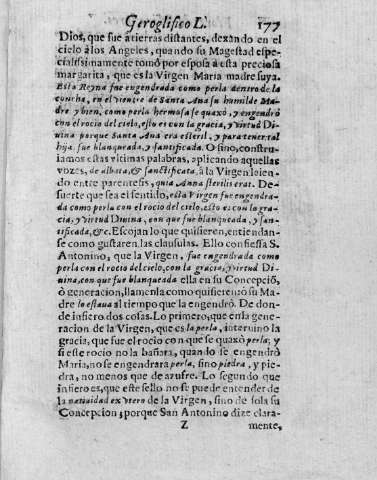 Geroglifico L. 177
Dios, que fue a tierras distantes, dexando en el
cielo à los Angeles, quando su Magestad espe-
cialissimamente tomò por esposa à esta preciosa
margarita, que es la Virgen Maria madre suya.
Esta Reyna fue engendrada como perla dentro de la
concha, en el vientre de Santa Ana su humilde Ma-
dre y bien, como perla hermosa se quaxò, y engendrò
con el rocio del cielo, esto es con la gracia, y virtud Di-
uina porque Santa Ana era esteril, y para tener tal
hija fue blanqueada, y santificada. O sino, constru-
iamos estas vltimas palabras, aplicando aquellas
vozes, de albata, & sanctificata, à la Virgen leien-
do entre parentesis, quia Anna sterilis erat. De-
suerte que sea el sentido, esta Virgen fue engendra-
da como perla con el rocio del cielo, esto es con la gra-
cia, y virtud Diuina, con que fue blanqueada, y san-
tificada, &c. Escojan lo que quisieren, entiendan-
se como gustaren las clausulas. Ello confiessa S.
Antonino, que la Virgen, fue engendrada como
perla con el rocio del cielo, con la gracia, y virtud Di-
uina, con que fue blanqueada ella en su Concepciõ,
ò generacion, llamenla como quisieren; ò su Ma-
dre lo estaua al tiempo que la engendrò. De don-
de infiero dos cosas. Lo primero, que en la gene-
racion de la Virgen, que es la perla, interuino la
gracia, que fue el rocio con que se quaxò perla; y
si este rocio no la bañara, quando se engendrò
Maria, no se engendrara perla, sino piedra, y pie-
dra, no menos que de azufre. Lo segundo que
infiero es, que este sello no se puede entender de
la natiuidad ex vtero de la Virgen, sino de sola su
Concepcion; porque San Antonino dize clara-
Z mente,